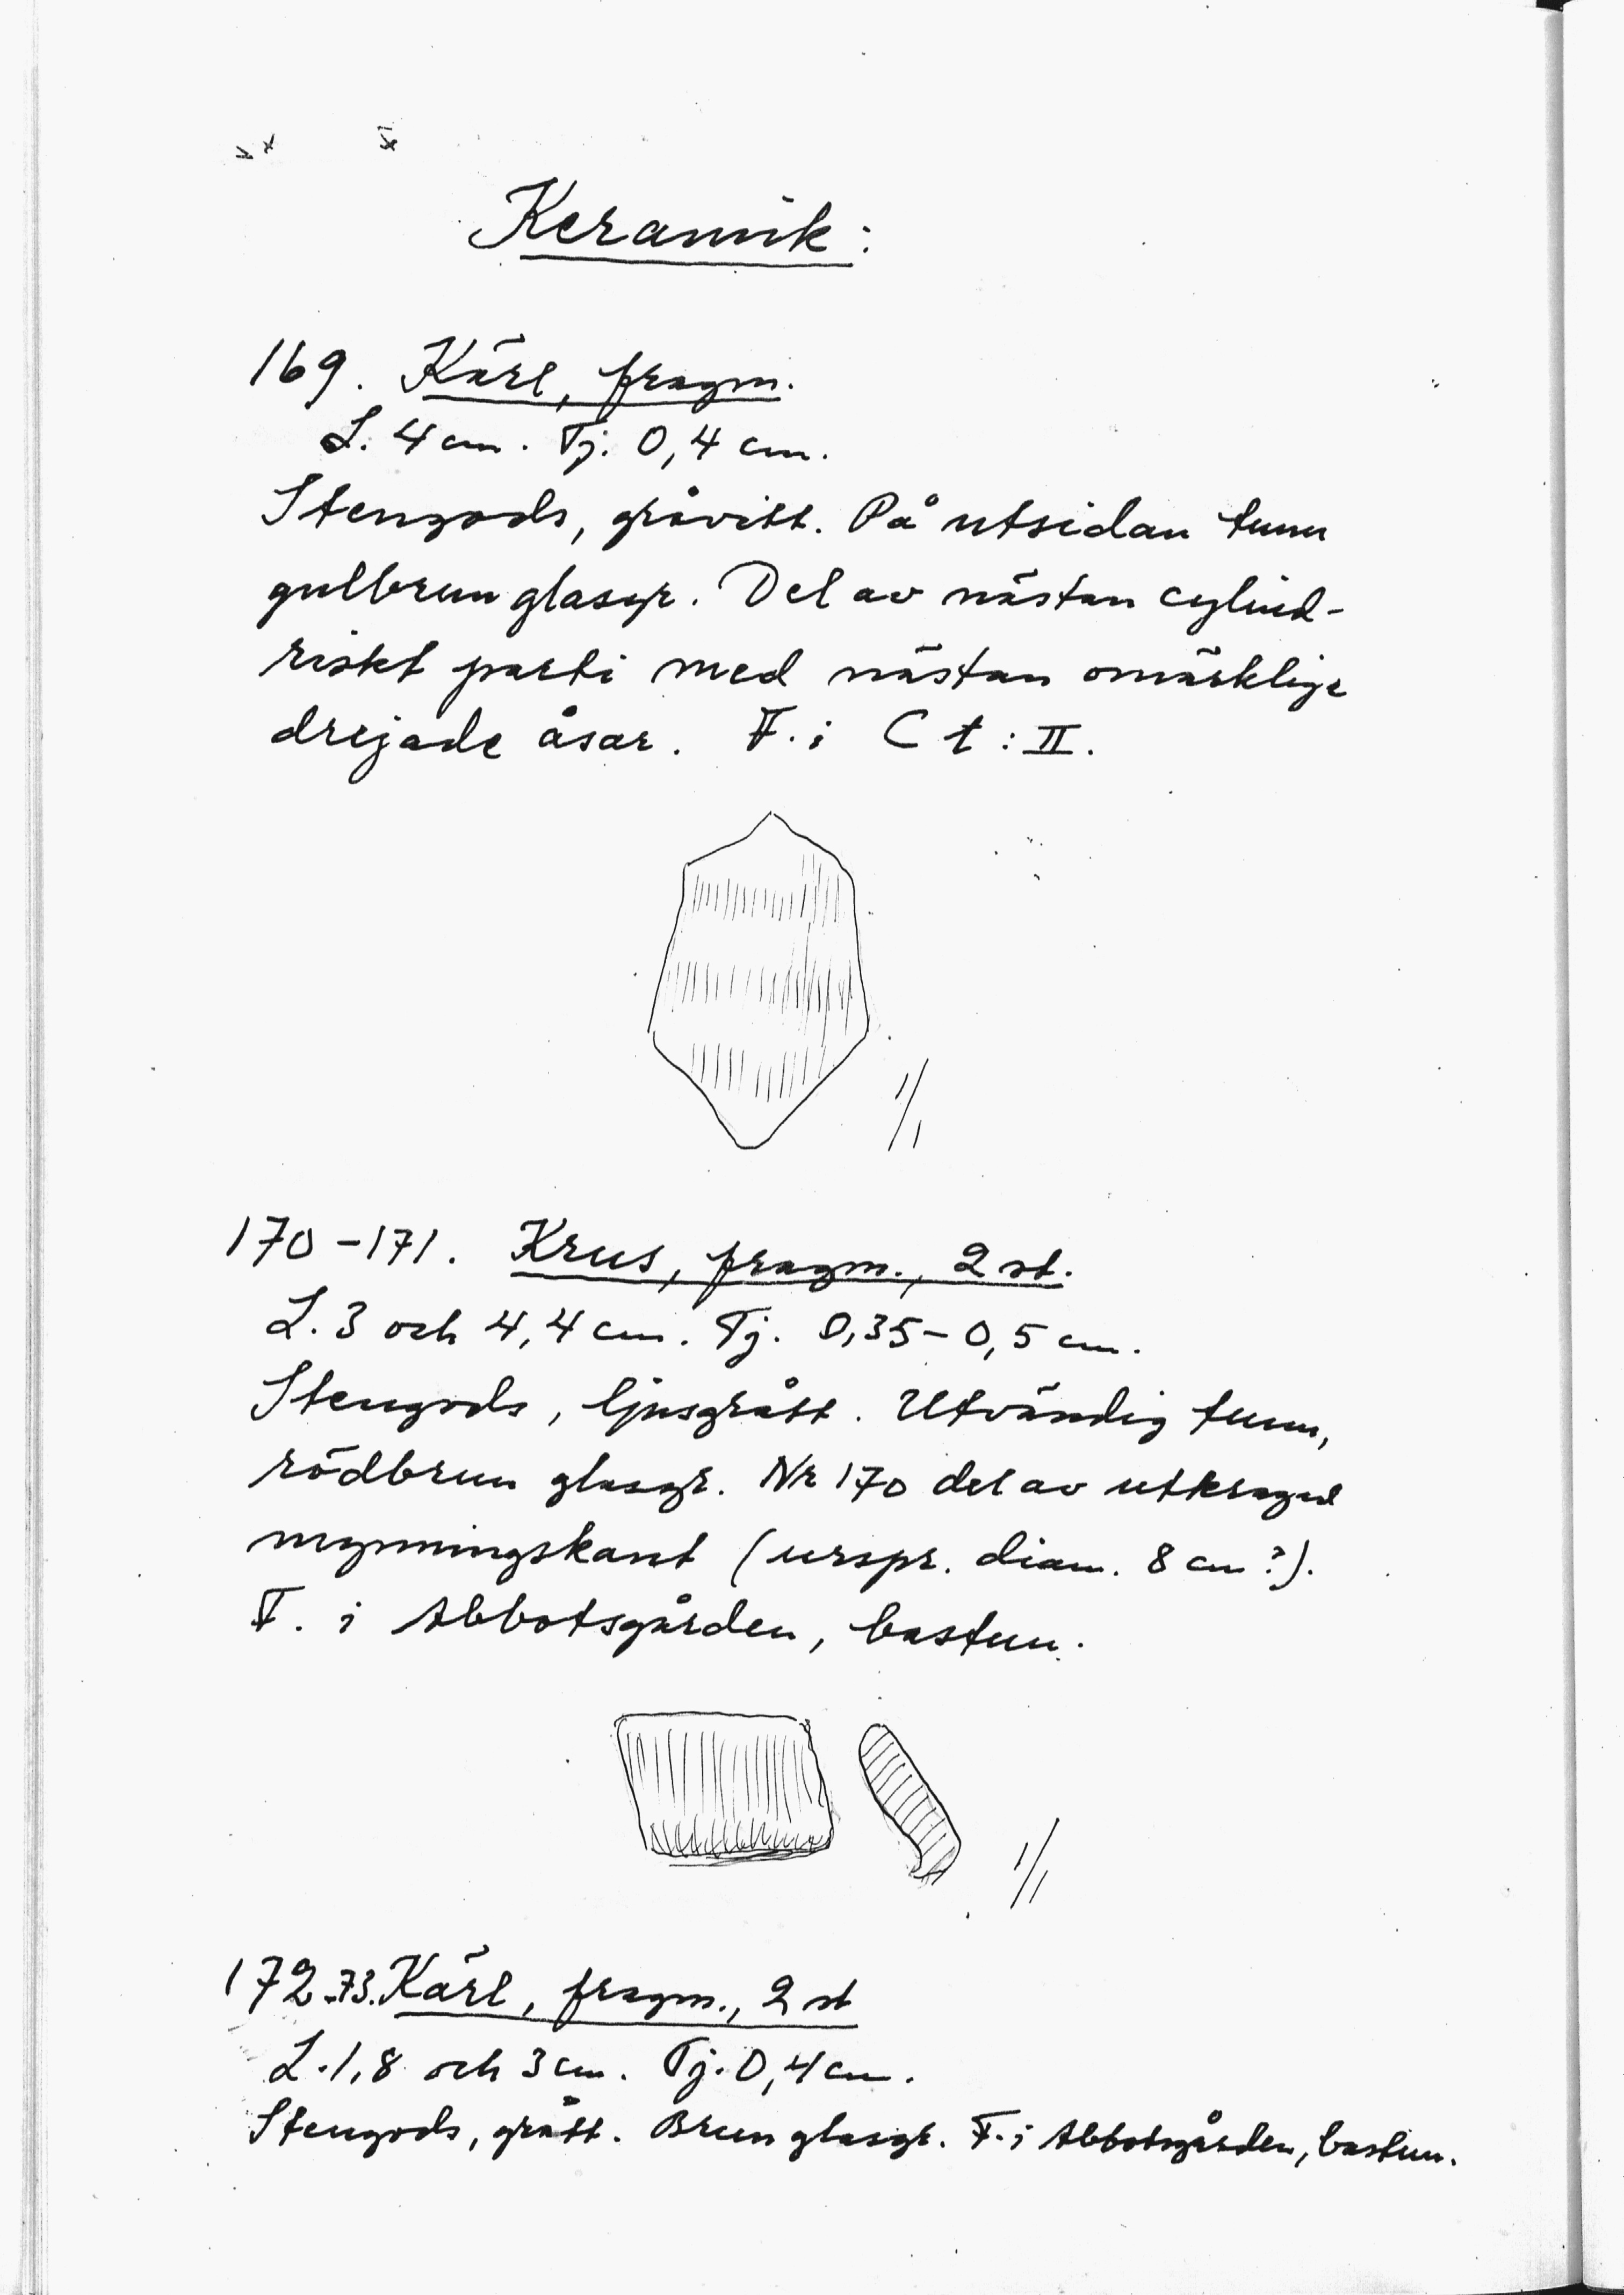 Keramik:
169. Kärl, fragm.
L. 4 cm. Tj. 0,4 cm.
Stengods, gråvitt. På utsidan tunn
gulbrun glasyr. Del av nästan cylind-
riskt parti med nästan omärklige
drejade åsar. F. i C t : II.
1/1
170-171. Krus, fragm., 2 st.
L. 3 och 4,4 cm. Tj. 0,35-0,5 cm.
Stengods, ljusgrått. Utvändig tunn,
rödbrun glasyr. Nr 170 del av utkragad
mynningskant (urspr. diam. 8 cm?).
F. i Abbotsgården, bastun.
1/1
172-73. Kärl, fragm., 2 st
L. 1,8 och 3 cm. Tj. 0,4 cm.
Stengods, grått. Brun glasyr. F. i Abbotsgården, bastun.